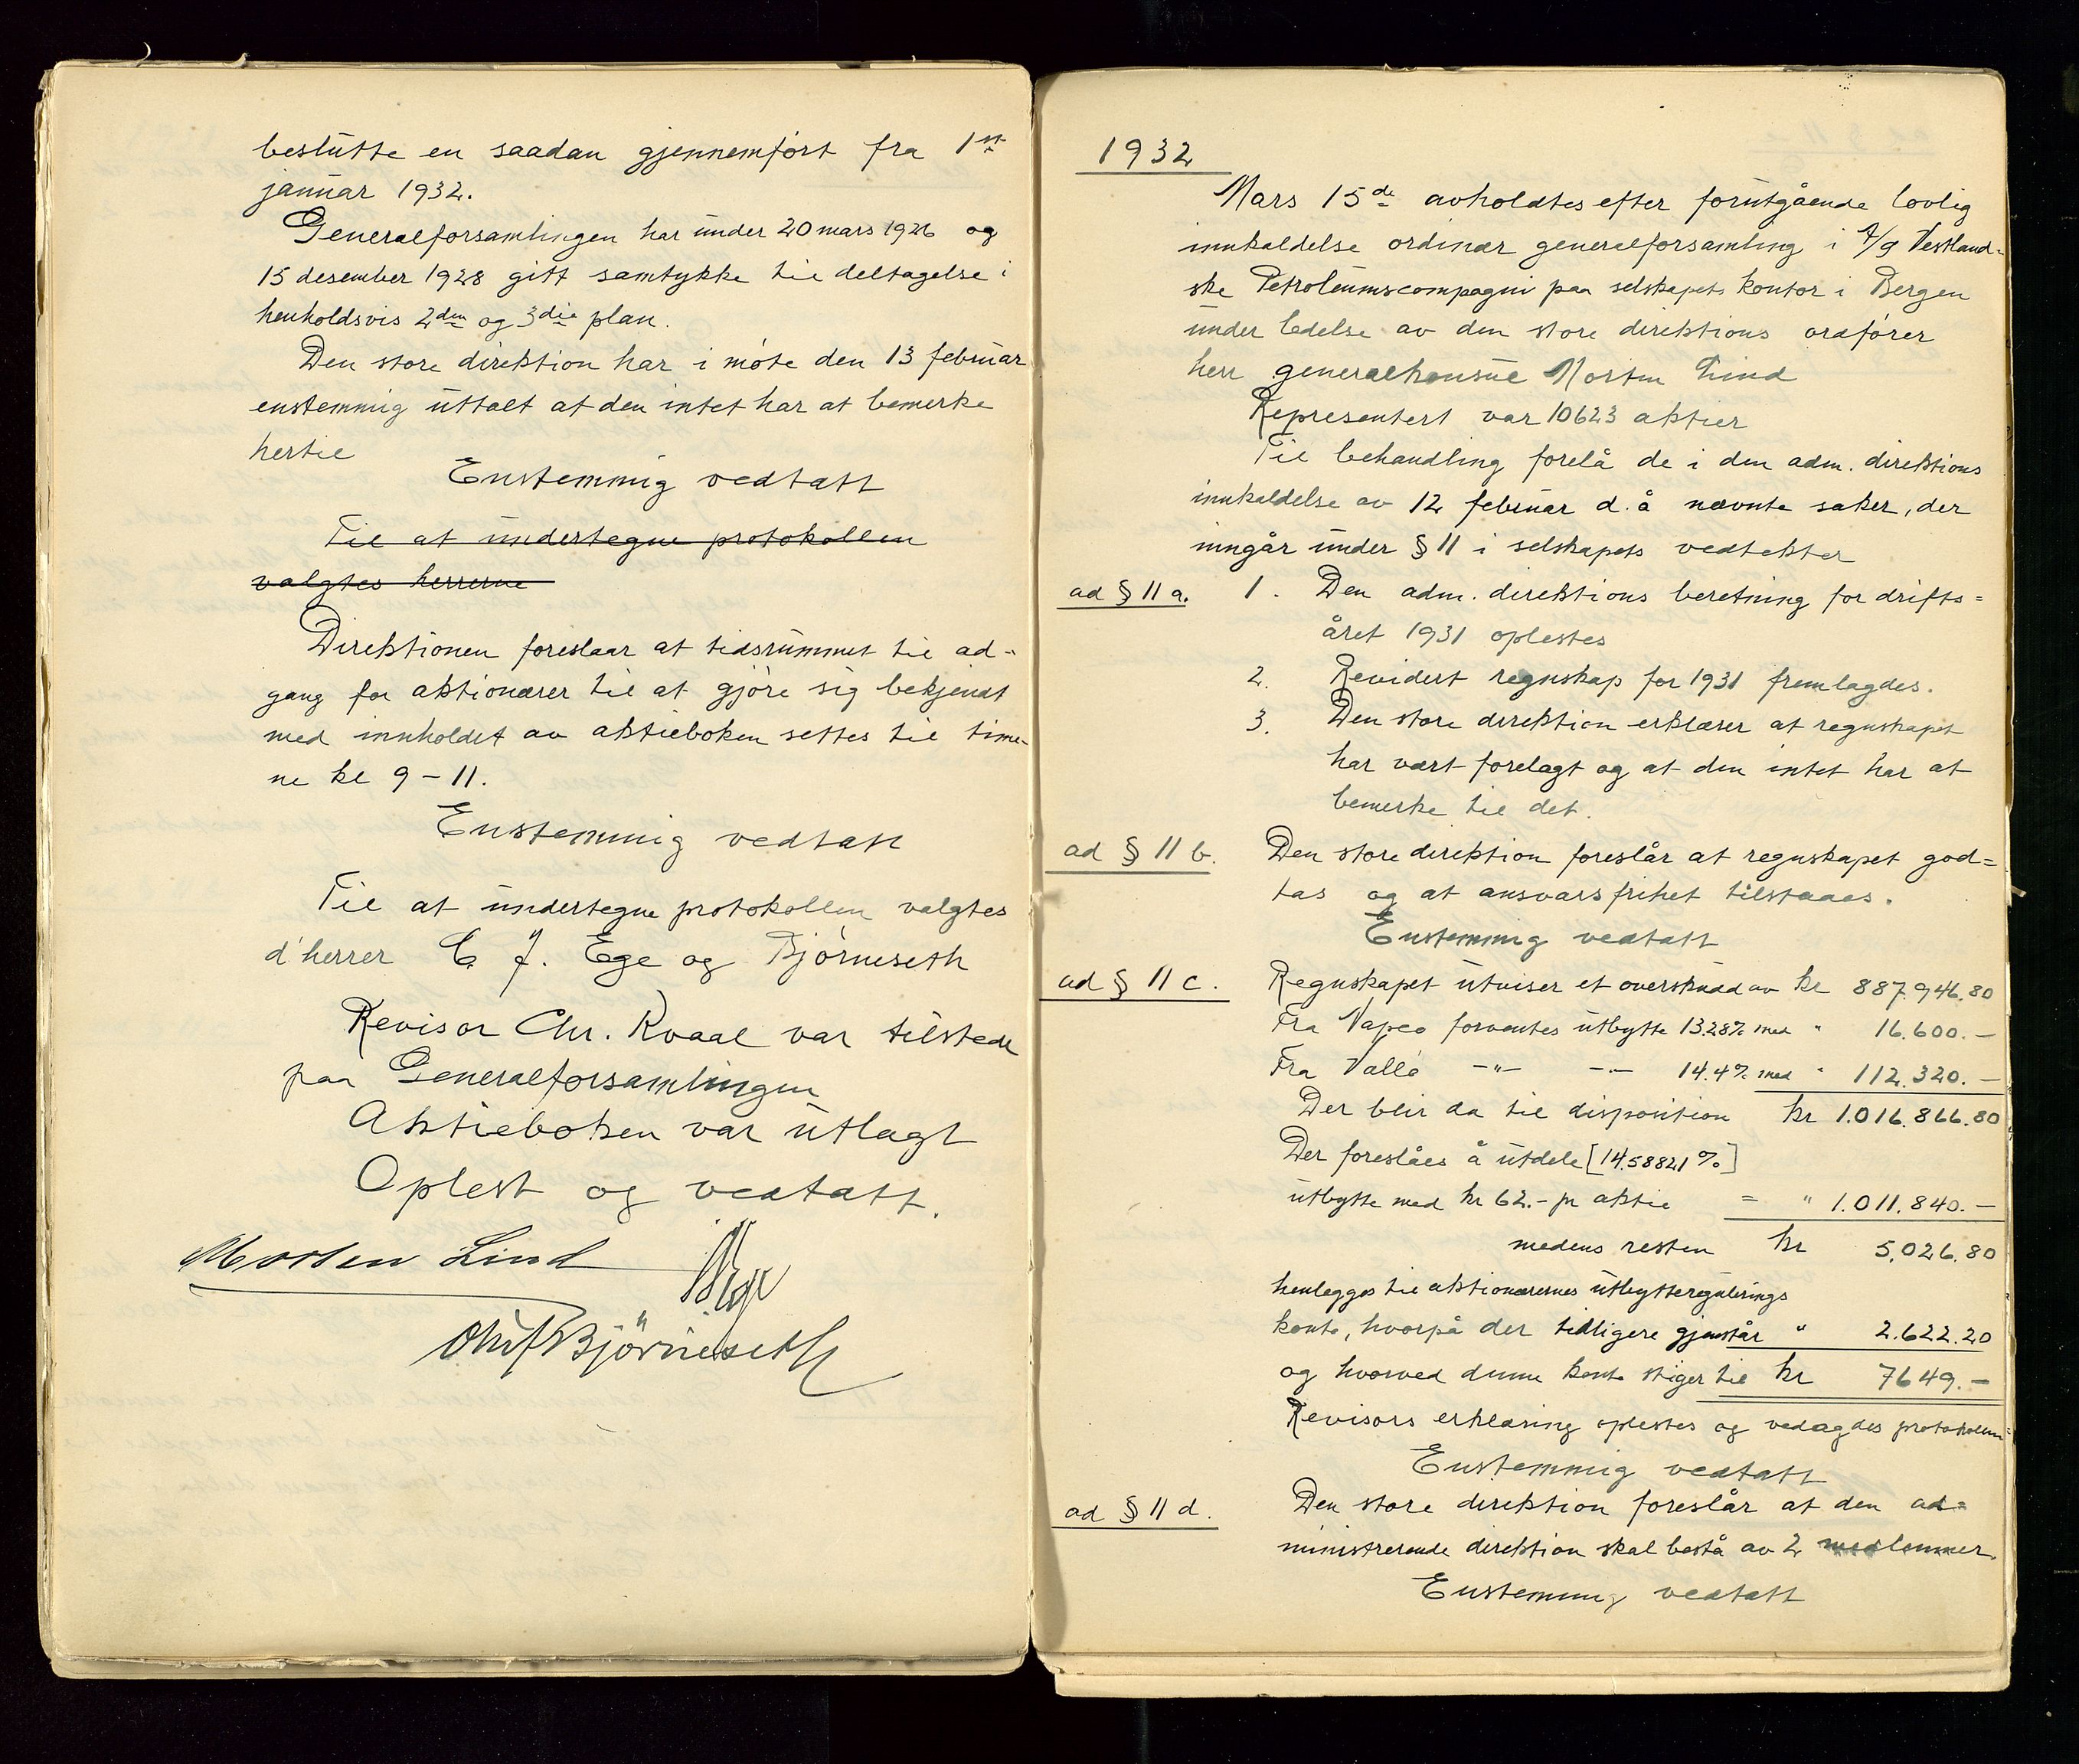 beslutte en saadan gjennemført fra 1st
januar 1932.
Generalforsamlingen har under 20 mars 1926 og
15 desember 1928 gitt samtykke til deltagelse i
henholdsvis 2den og 3die plan.
Den store direktion har i møte den 13 februar
enstemmig uttalt at den intet har at bemerke
hertil
Enstemmig vedtatt
Til at undertegne protokollen
valgtes herrerne
Direktionen foreslaar at tidsrummet til ad-
gang for aktionærer til at gjøre sig bekjendt
med innholdet av aktieboken settes til time-
ne kl 9 - 11.
Enstemmig vedtatt
Til at undertegne protokollen valgtes
d'herrer C. J. Ege og Bjørneseth
Revisor Chr. Kvaal var tilstede
paa Generalforsamlingen
Aktieboken var utlagt
Oplest og vedtatt.
Morten Lind Ege
Oluf Bjørneseth
1932
Mars 15de avholdtes efter forutgående lovlig
innkaldelse ordinær generalforsamling i A/S Vestland-
ske Petroleumscompagni paa selskapets kontor i Bergen
under ledelse av den store direktions ordfører
herr generalkonsul Morten Lind
Representert var 10623 aktier
Til behandling forelå de i den adm. direktions
innkaldelse av 12 februar d.å nævnte saker, der
inngår under § 11 i selskapets vedtekter
ad § 11 a. 1. Den adm. direktions beretning for drifts=
året 1931 oplestes
2. Revidert regnskap for 1931 fremlagdes.
3. Den store direktion erklærer at regnskapet
har vært forelagt og at den intet har at
bemerke til det.
ad § 11 b. Den store direktion foreslår at regnskapet god=
tas og at ansvarsfrihet tilstaaes.
Enstemmig vedtatt
ad § 11 c. Regnskapet utviser et overskudd av kr 887.946.80
Fra Vapco forventes utbytte 13.28% med " 16.600.—
Fra Vallø —"— —"— 14.4% med " 112.320.—
Der blir da til disposition kr 1.016.866.80
Der foreslåes å utdele [14.58821%]
utbytte med kr 62.- pr aktie = " 1.011.840.—
medens resten kr 5.026.80
henlegges til aktionærernes utbyttereguleringskonto
konto, hvorpå der tidligere gjenstår " 2.622.20
og hvorved denne konto stiger til kr 7649.—
Revisors erklæring oplestes og vedlagdes protokollen
Enstemmig vedtatt
ad § 11 d. Den store direktion foreslår at den ad=
ministrerende direktion skal bestå av 2 medlemmer.
Enstemmig vedtatt